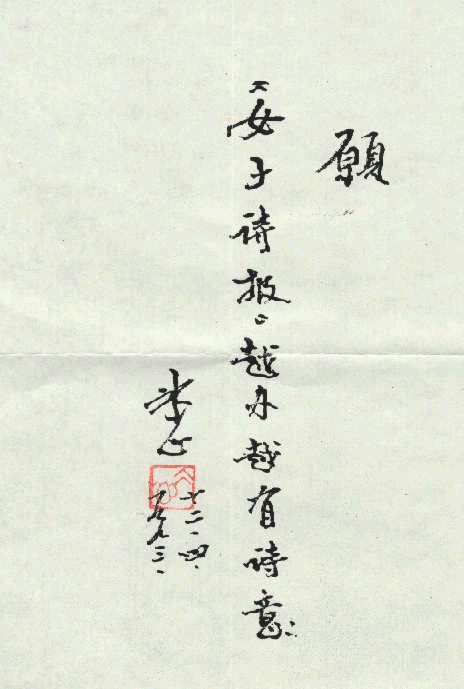 願
〈女子诗报〉越办越有诗意
一九九三.
十二.四.